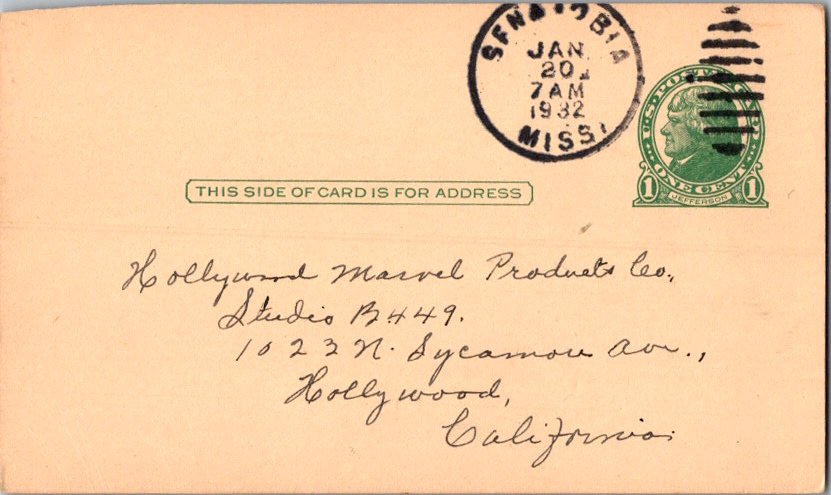 SENATOBIA
JAN
20
7 AM
1932
MISS
U.S. POSTAL CARD
ONE CENT
1 JEFFERSON 1
THIS SIDE OF CARD IS FOR ADDRESS
Hollywood Marvel Products Co.,
Studio B449.
1023 N. Sycamore Ave.,
Hollywood,
California.